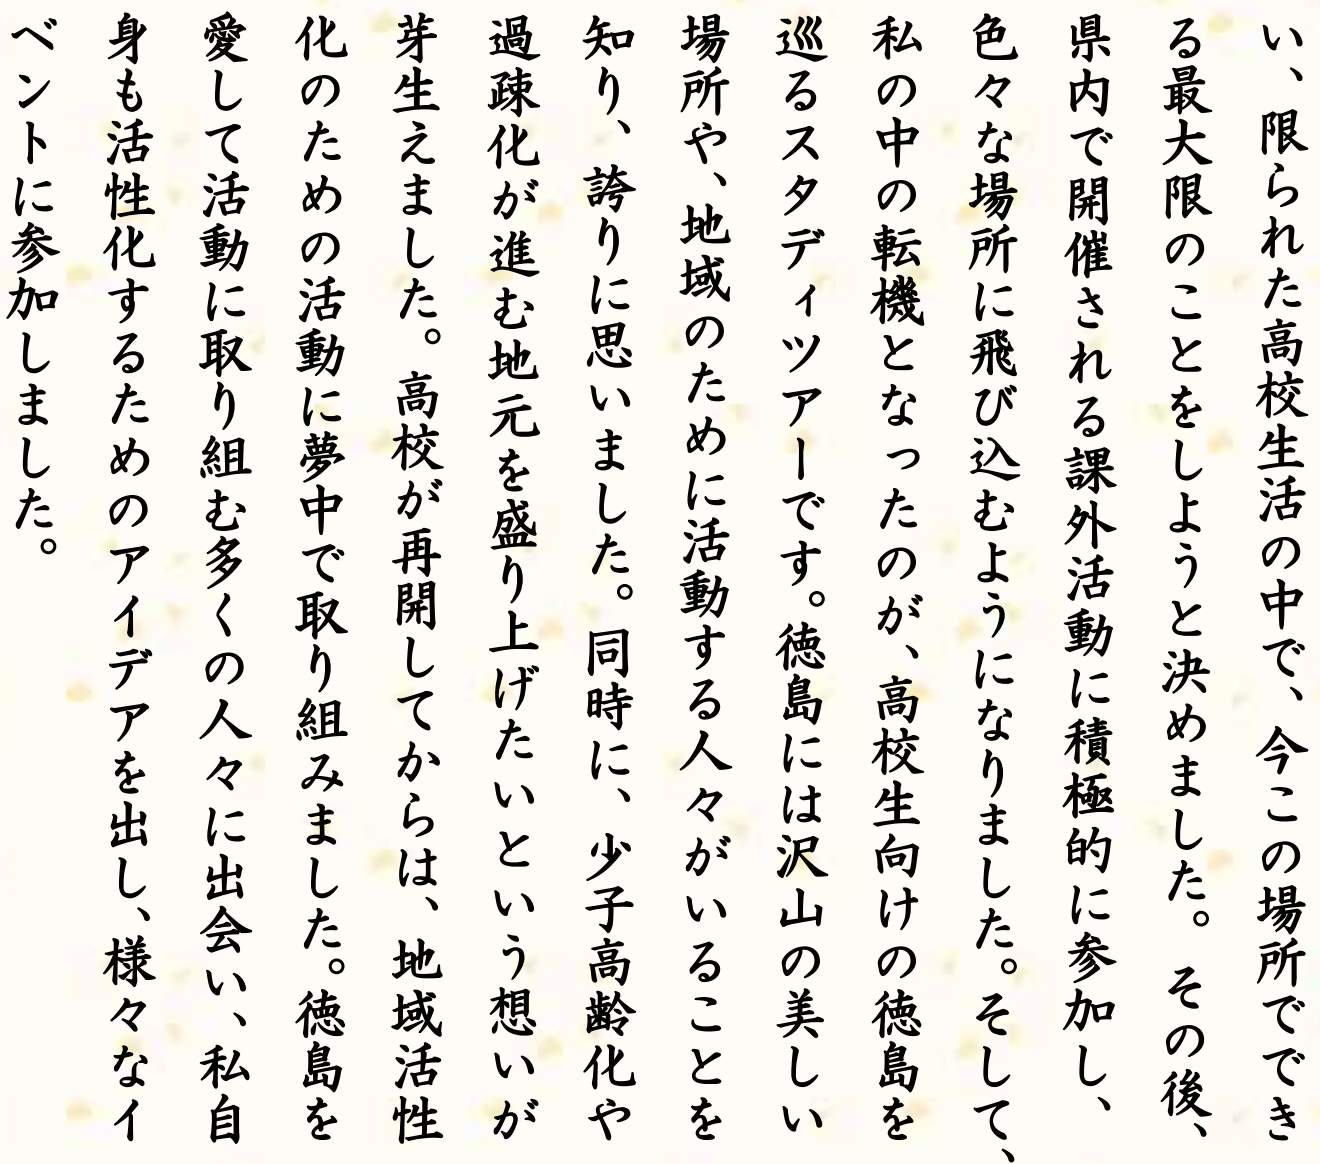 い、限られた高校生活の中で、今この場所ででき
る最大限のことをしようと決めました。その後、
県内で開催される課外活動に積極的に参加し、
色々な場所に飛び込むようになりました。そして、
私の中の転機となったのが、高校生向けの徳島を
巡るスタディツアーです。徳島には沢山の美しい
場所や、地域のために活動する人々がいることを
知り、誇りに思いました。同時に、少子高齢化や
過疎化が進む地元を盛り上げたいという想いが
芽生えました。高校が再開してからは、地域活性
化のための活動に夢中で取り組みました。徳島を
愛して活動に取り組む多くの人々に出会い、私自
身も活性化するためのアイデアを出し、様々なイ
ベントに参加しました。